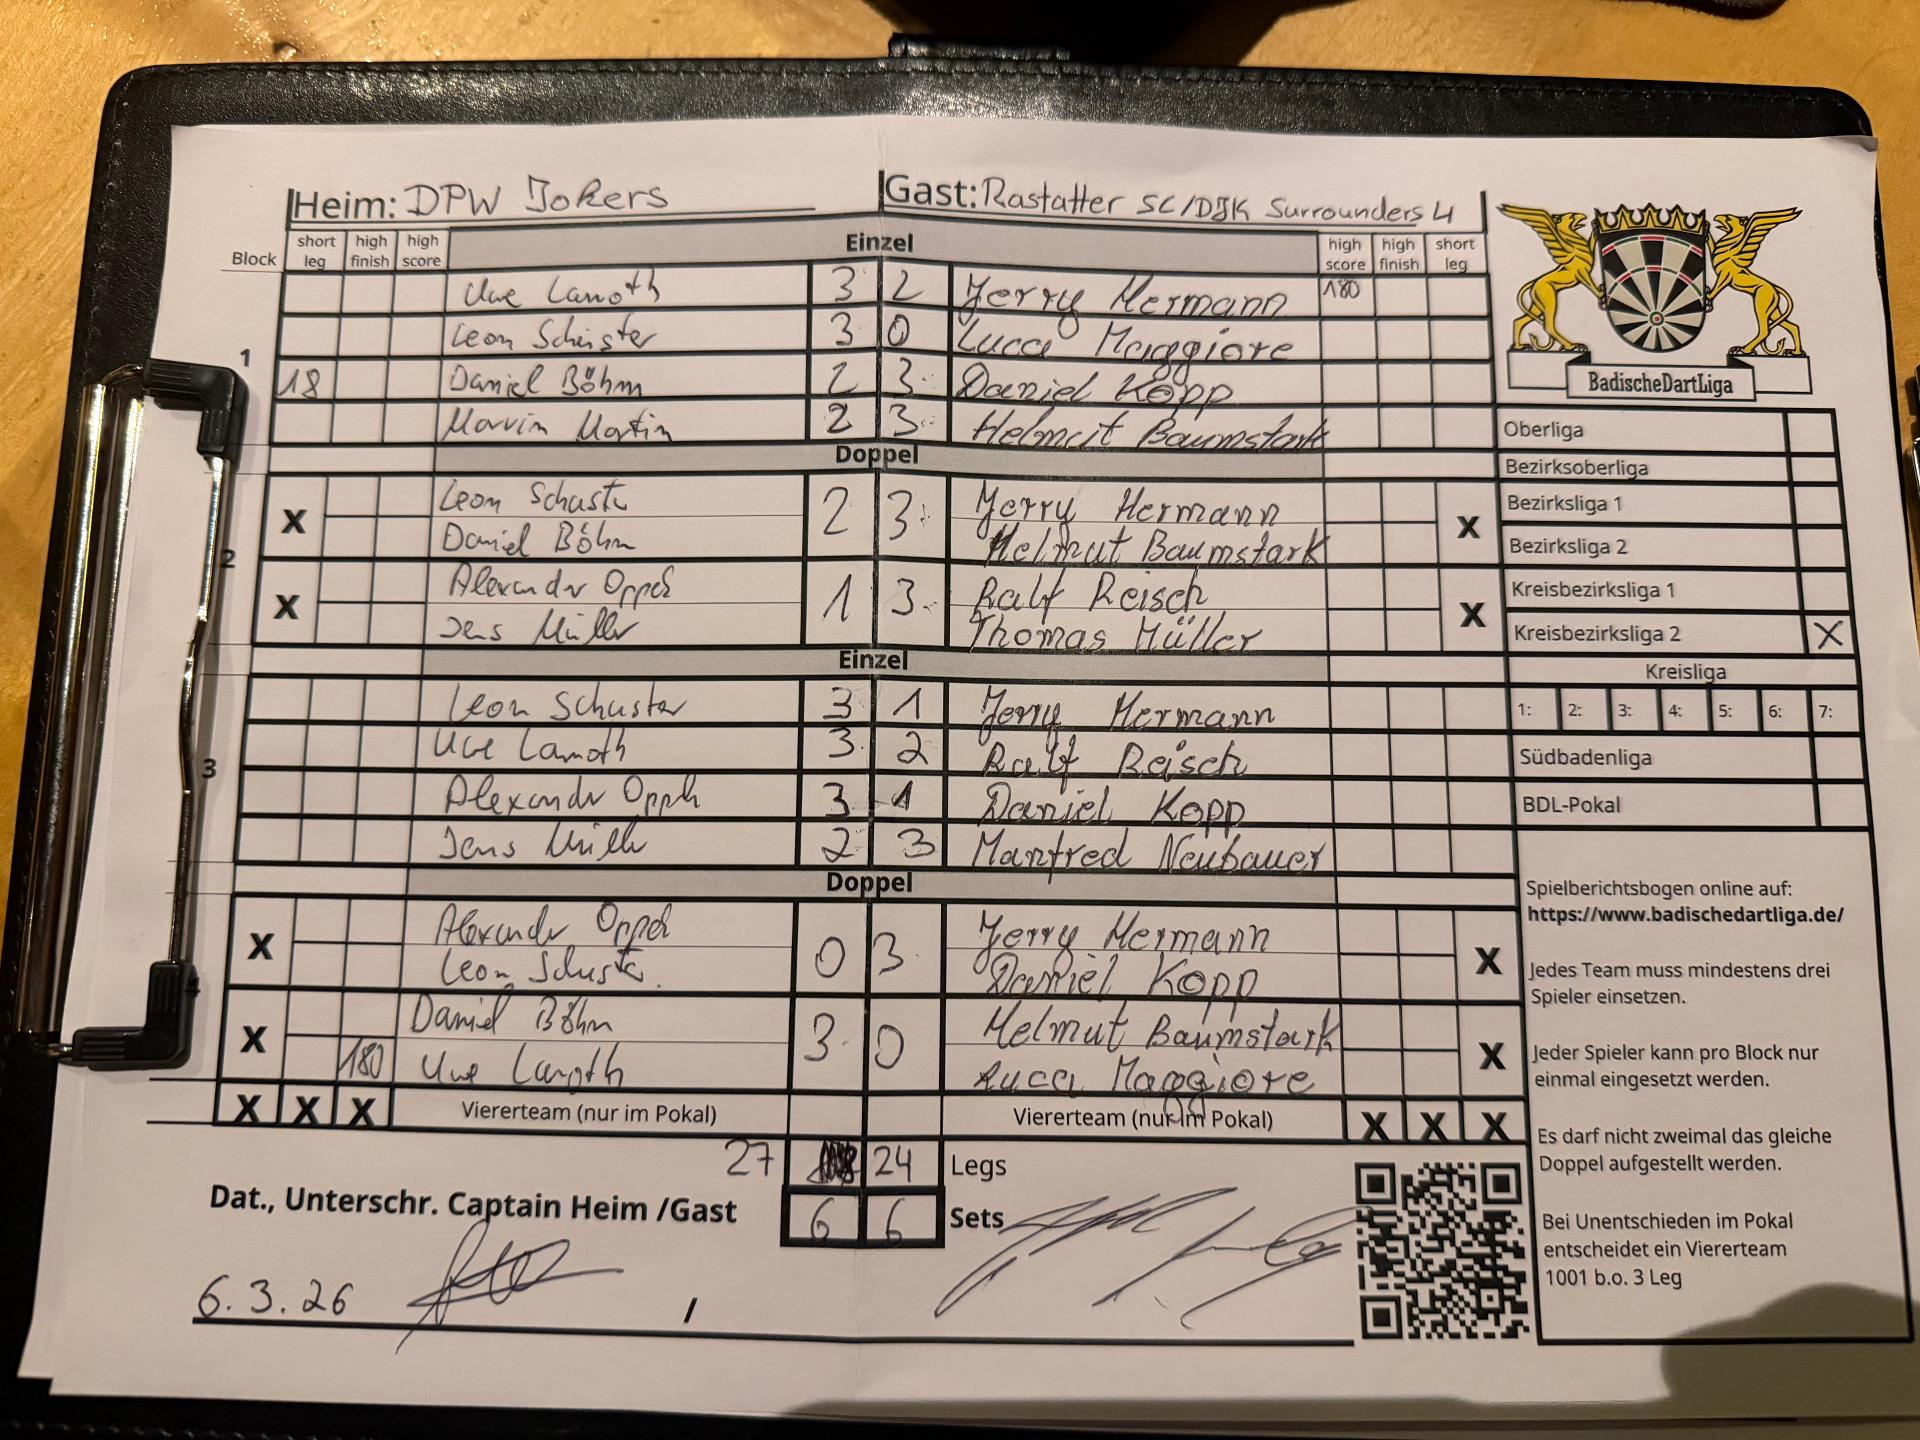 Heim: DPW Jokers Gast: Rastatter SC/DJK Surrounders 4
Block short leg high finish high score Einzel high score high finish short leg
Uwe Lamoth 3 2 Jerry Hermann 180
1 Leon Schuster 3 0 Lucca Maggiore
18 Daniel Böhm 2 3 Daniel Kopp
Marvin Martin 2 3 Helmut Baumstark
Doppel
X Leon Schuster 2 3 Jerry Hermann X
Daniel Böhm Helmut Baumstark
2
X Alexander Oppel 1 3 Ralf Reisch X
Jens Müller Thomas Müller
Einzel
Leon Schuster 3 1 Jerry Hermann
Uwe Lamoth 3 2 Ralf Reisch
3 Alexander Oppel 3 1 Daniel Kopp
Jens Müller 2 3 Manfred Neubauer
Doppel
X Alexander Oppel 0 3 Jerry Hermann X
Leon Schuster Daniel Kopp
4
X Daniel Böhm 3 0 Helmut Baumstark X
180 Uwe Lamoth Lucca Maggiore
X X X Viererteam (nur im Pokal) Viererteam (nur im Pokal) X X X
27 24 Legs
Dat., Unterschr. Captain Heim /Gast 6 6 Sets
6.3.26 /
BadischeDartLiga
Oberliga
Bezirksoberliga
Bezirksliga 1
Bezirksliga 2
Kreisbezirksliga 1
Kreisbezirksliga 2 X
Kreisliga
1: 2: 3: 4: 5: 6: 7:
Südbadenliga
BDL-Pokal
Spielberichtsbogen online auf:
https://www.badischedartliga.de/
Jedes Team muss mindestens drei
Spieler einsetzen.
Jeder Spieler kann pro Block nur
einmal eingesetzt werden.
Es darf nicht zweimal das gleiche
Doppel aufgestellt werden.
Bei Unentschieden im Pokal
entscheidet ein Viererteam
1001 b.o. 3 Leg